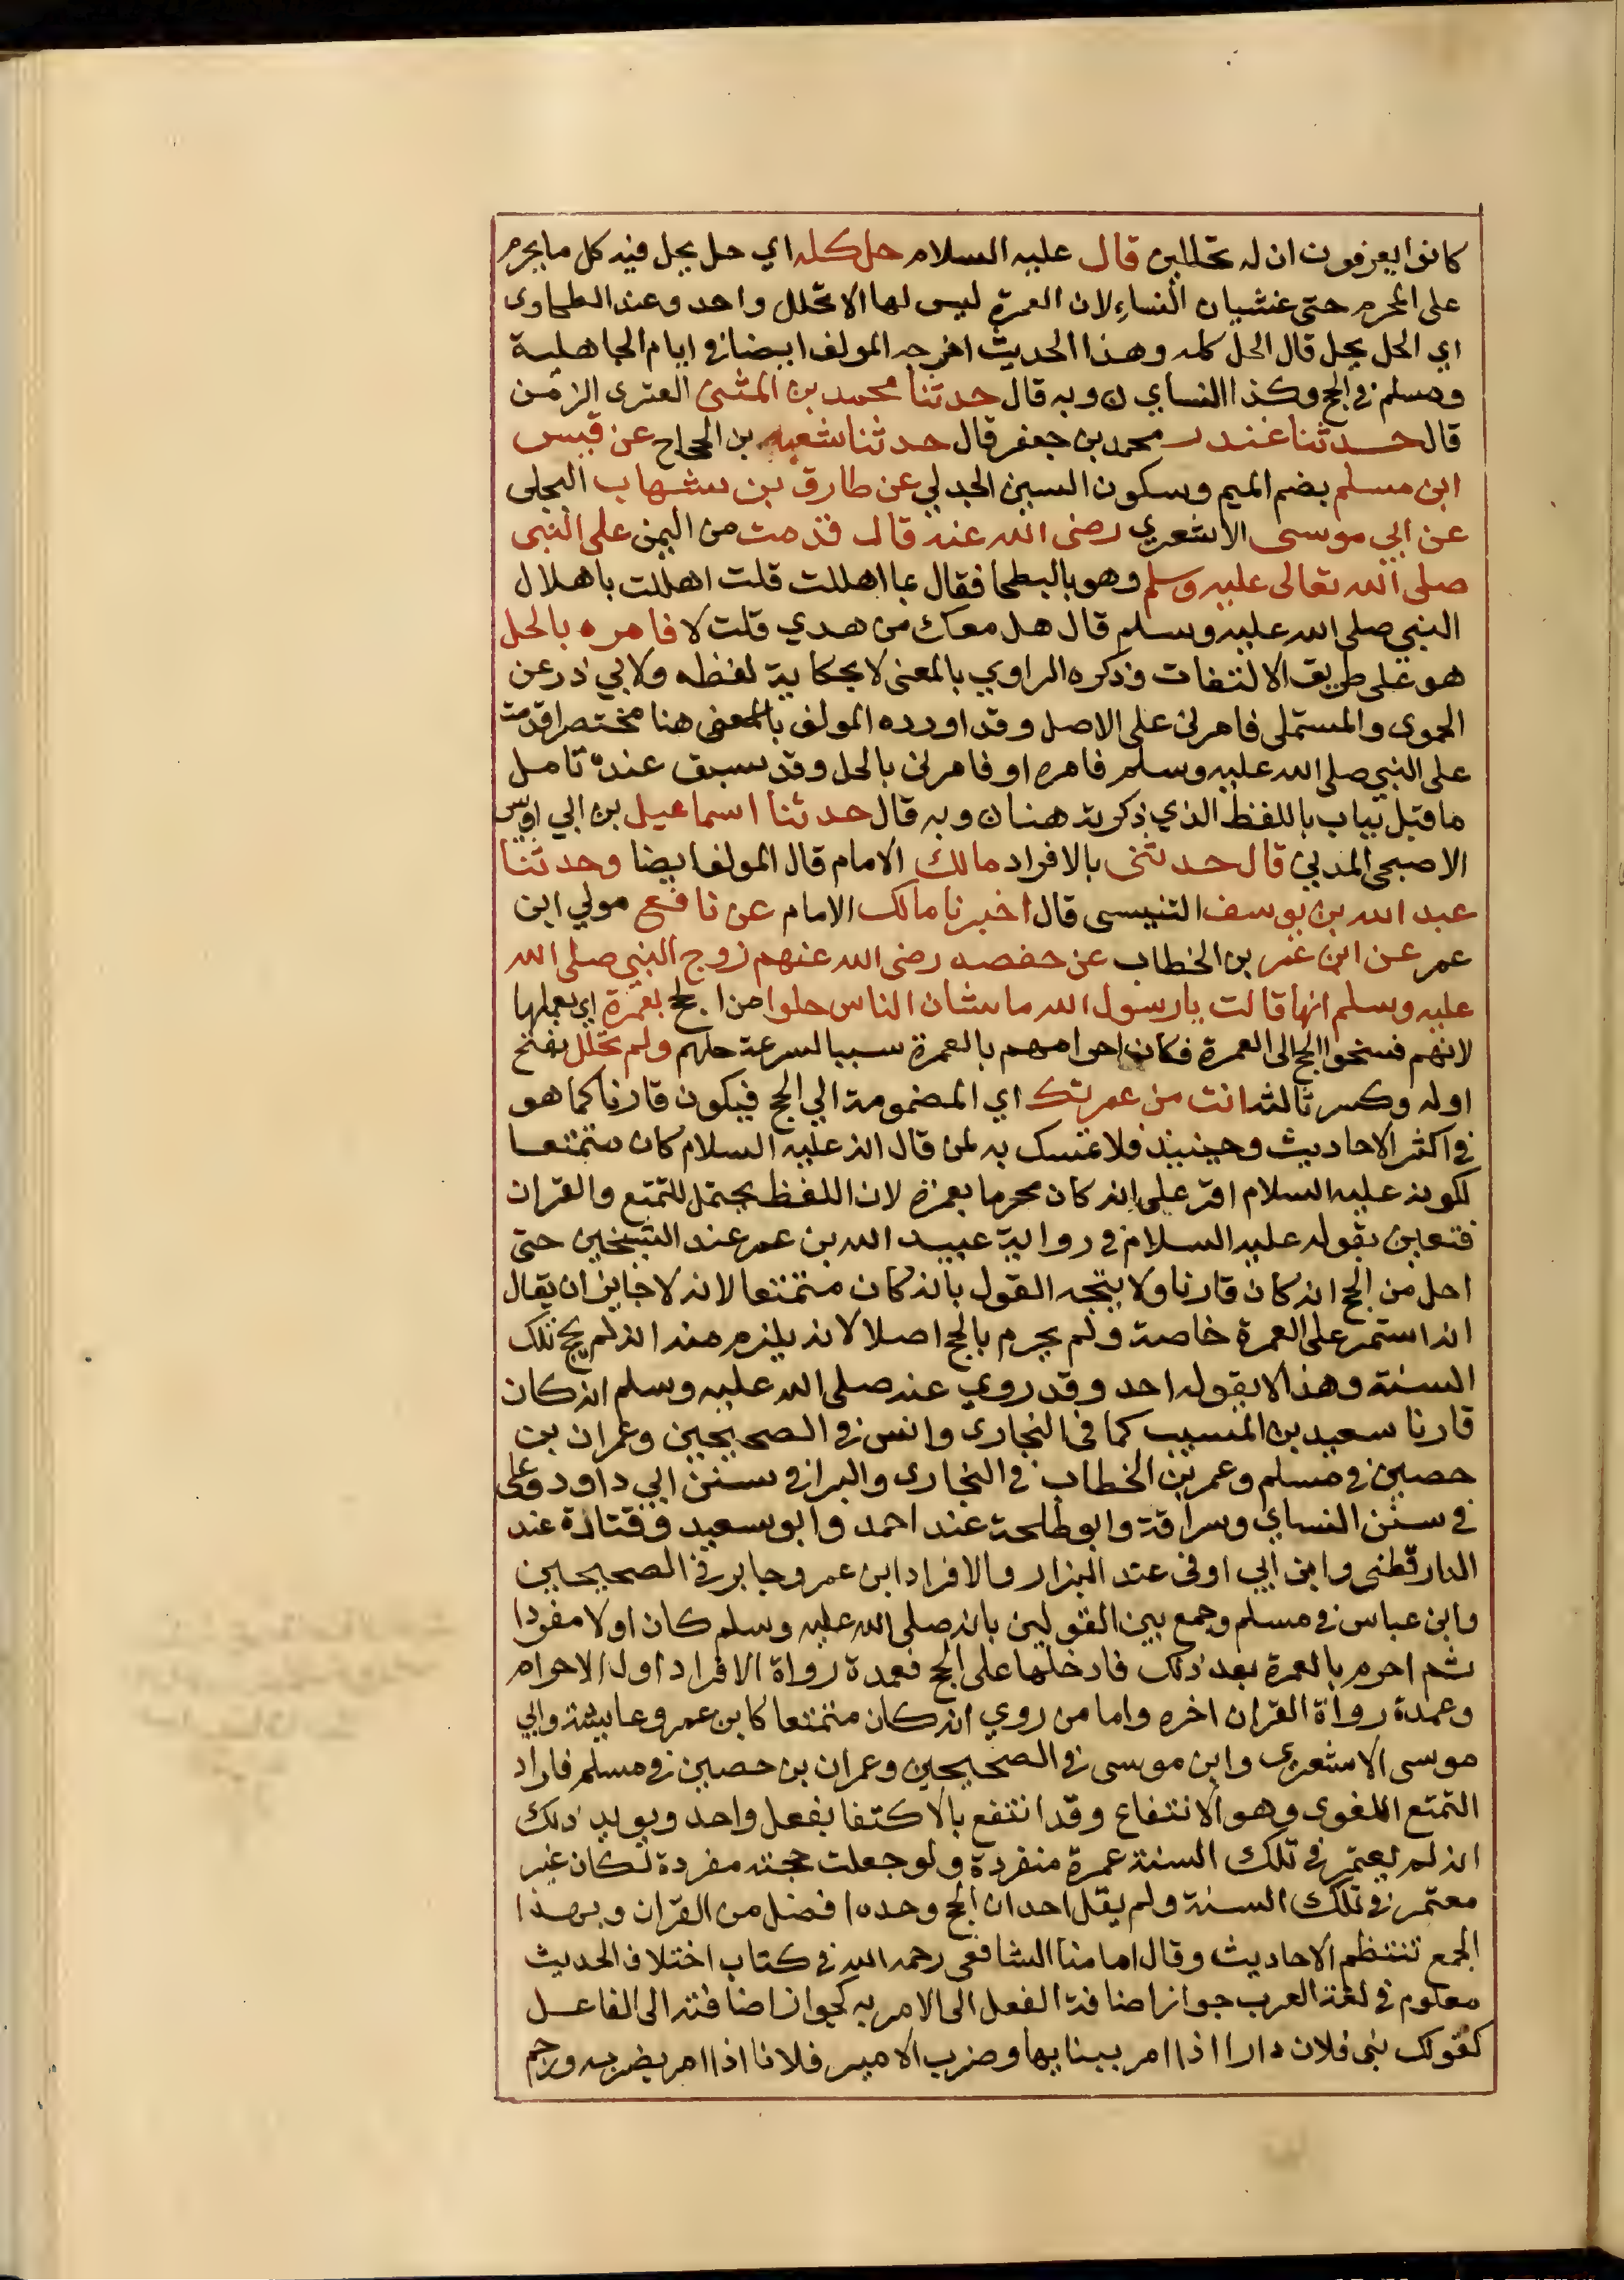 كانوا يعرفون ان له تحللين قال عليه السلام حل كله اي حل يحل فيه كل ما يحرم
على المحرم حتى غشيان النساء لان العمرة ليس لها الا تحلل واحد وعند الطحاوى
اي الحل يحل قال الحل كله وهذا الحديث اخرجه المولف ايضا في ايام الجاهلية
ومسلم في الحج وكذا النساي ن وبه قال حدثنا محمد بن المثنى العنزى الزمن
قال حدثنا غندر محمد بن جعفر قال حدثنا شعبه بن الحجاج عن قيس
ابن مسلم بضم الميم وسكون السين الجدلي عن طارق بن شهاب البجلى
عن ابي موسى الاشعري رضى الله عنه قال قدمت من اليمن على النبى
صلى الله تعالى عليه وسلم وهو بالبطحا فقال بما اهللت قلت اهللت باهلال
النبي صلى الله عليه وسلم قال هل معك من هدي قلت لا فامره بالحل
هو على طريق الالتفات وذكره الراوي بالمعنى لا بحكاية لفظه ولابي ذر عن
الحموى والمستملى فامرنى على الاصل وقد اورده المولف بالمعنى هنا مختصرا قدمت
على النبي صلى الله عليه وسلم فامره او فامرنى بالحل وقد سبق عنده تامل
ما قبل بباب باللفظ الذي ذكرته هنا ن وبه قال حدثنا اسماعيل بن ابي اويس
الاصبحى المدني قال حدثنى بالافراد مالك الامام قال المولف ايضا وحدثنا
عبد الله بن يوسف التنيسى قال اخبرنا مالك الامام عن نافع مولي ابن
عمر عن ابن عمر بن الخطاب عن حفصه رضى الله عنهم زوج النبي صلى الله
عليه وسلم انها قالت يا رسول الله ما شان الناس حلوا من الحج بعمرة اي بعملها
لانهم فسخوا الحج الى العمرة فكان احرامهم بالعمرة سببا لسرعة حلهم ولم تحلل بفتح
اوله وكسر ثالثه انت من عمرتك اي المضمومة الي الحج فيكون قارنا كما هو
في اكثر الاحاديث وحينيذ فلا تمسك به لمن قال انه عليه السلام كان متمتعا
لكونه عليه السلام اقر على انه كان محرما بعمرة لان اللفظ يحتمل للتمتع والقران
فتعين بقوله عليه السلام في رواية عبيد الله بن عمر عند الشيخين حتى
احل من الحج انه كان قارنا ولا يتجه القول بانه كان متمتعا لانه لا جايز ان يقال
انه استمر على العمرة خاصة ولم يحرم بالحج اصلا لانه يلزم منه انه لم يحج تلك
السنة وهذا لا يقوله احد وقد روي عنه صلى الله عليه وسلم انه كان
قارنا سعيد بن المسيب كما فى البخارى وانس في الصحيحين وعمران بن
حصين في مسلم وعمر بن الخطاب في البخارى والبرا في سنن ابي داود وعلى
في سنن النساي وسراقة وابو طلحة عند احمد وابو سعيد وقتادة عند
الدارقطنى وابن ابي اوفى عند البزار والافراد ابن عمر وجابر في الصحيحين
وابن عباس في مسلم وجمع بين القولين بانه صلى الله عليه وسلم كان اولا مفردا
ثم احرم بالعمرة بعد ذلك فادخلها على الحج فعمدة رواة الافراد اول الاحرام
وعمدة رواة القران اخره واما من روي انه كان متمتعا كابن عمر وعايشة وابي
موسى الاشعرى وابن موسى في الصحيحين وعمران بن حصين في مسلم فاراد
التمتع اللغوى وهو الانتفاع وقد انتفع بالاكتفا بفعل واحد ويويد ذلك
انه لم يعتمر في تلك السنة عمرة منفردة ولو جعلت حجته مفردة لكان غير
معتمر في تلك السنة ولم يقل احد ان الحج وحده افضل من القران وبهذا
الجمع تنتظم الاحاديث وقال امامنا الشافعى رحمه الله في كتاب اختلاف الحديث
معلوم في لغة العرب جواز اضافة الفعل الى الامر به كجواز اضافته الى الفاعل
كقولك بنى فلان دارا اذا امر ببنايها وضرب الامير فلانا اذا امر بضربه ورجم